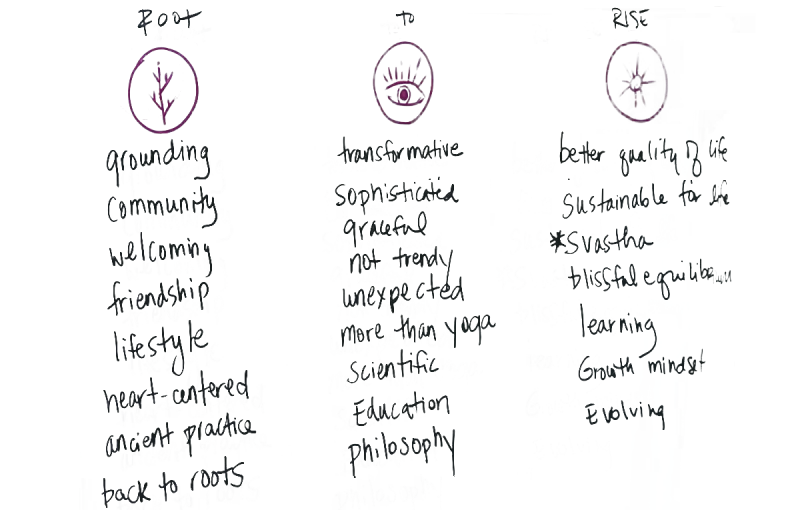 ROOT
grounding
Community
welcoming
friendship
lifestyle
heart-centered
ancient practice
back to roots
to
transformative
Sophisticated
graceful
not trendy
unexpected
more than yoga
Scientific
Education
Philosophy
RISE
better quality of life
Sustainable for life
*Svastha
blissful equilibrium
learning
Growth mindset
Evolving